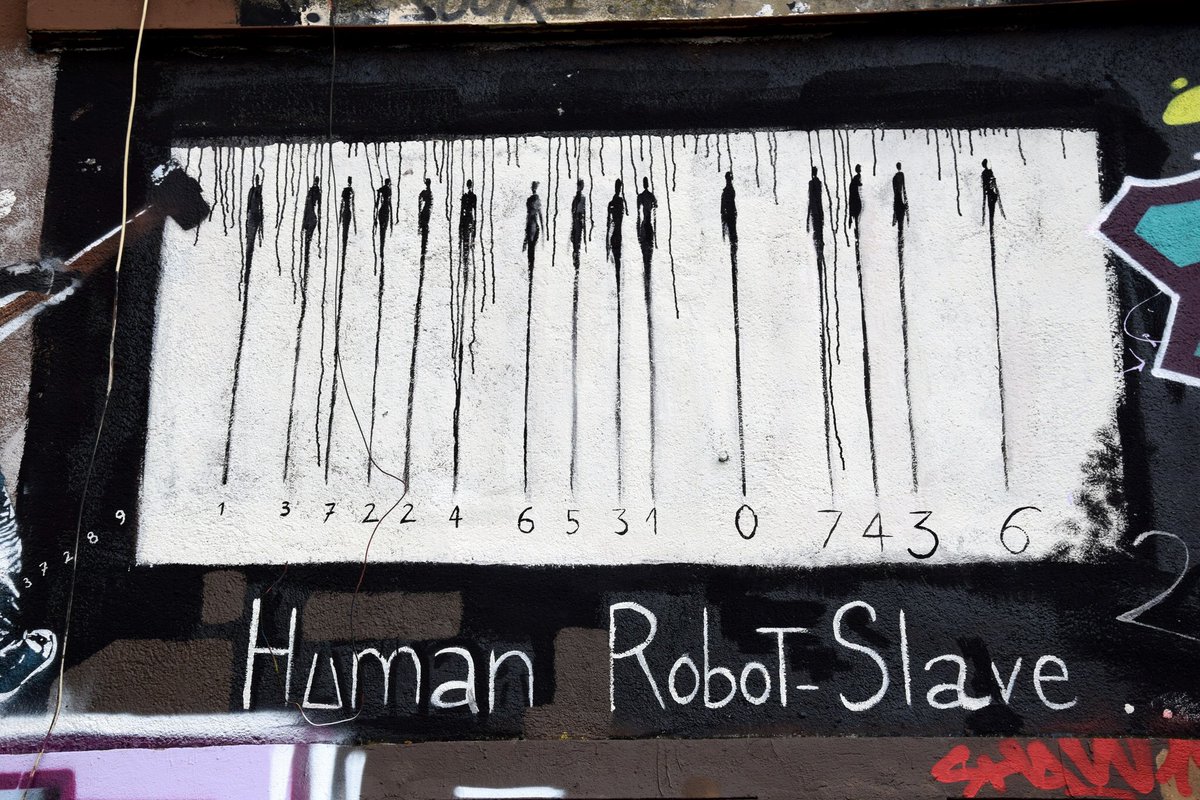 1 3 7 2 2 4 6 5 3 1 0 7 4 3 6
3 7 2 8 9
2
Human Robot-Slave ..